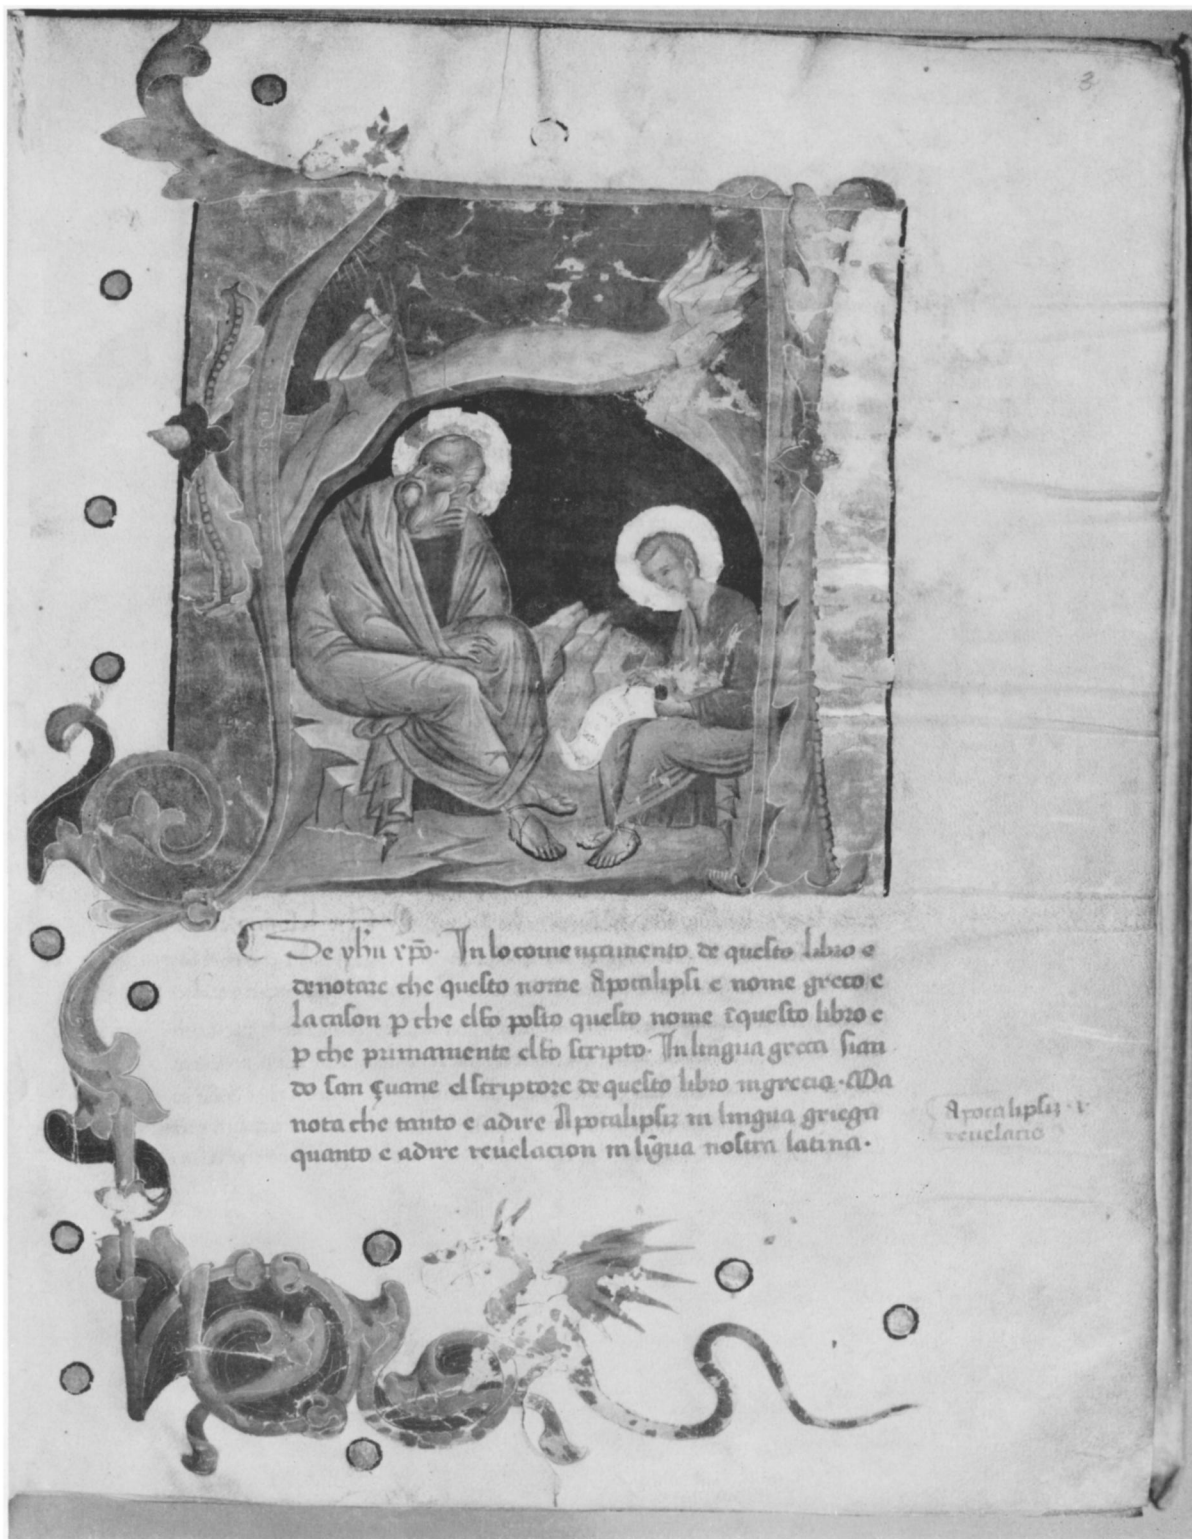 3
De yhu xpo. In lo comenzamento de questo libro e
denotare che questo nome Apocalipsi e nome greco e
la cason p che elfo posto questo nome i questo libro e
p che primamente el fo scripto. In lingua greca sian
do san çuane el scriptore de questo libro in grecia. Ma
nota che tanto e adire Apocalipsis in lingua griega
quanto e adire revelacion in ligua nostra latina.
Apocalipsis .i.
revelatio